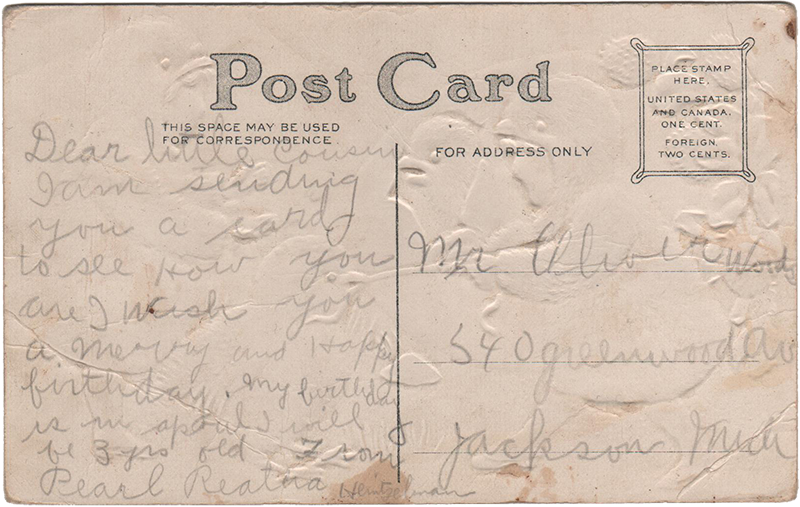 Post Card
THIS SPACE MAY BE USED
FOR CORRESPONDENCE
FOR ADDRESS ONLY
PLACE STAMP
HERE.
UNITED STATES
AND CANADA,
ONE CENT.
FOREIGN,
TWO CENTS.
Dear little cousin
I am sending
you a card
to see How you
are I wish you
a Merry and Happy
birthday. My birthday
is in I will
be 3 yrs old From
Pearl Heintzelman
Mr Oliver Woods
540 greenwood Av
Jackson Mich